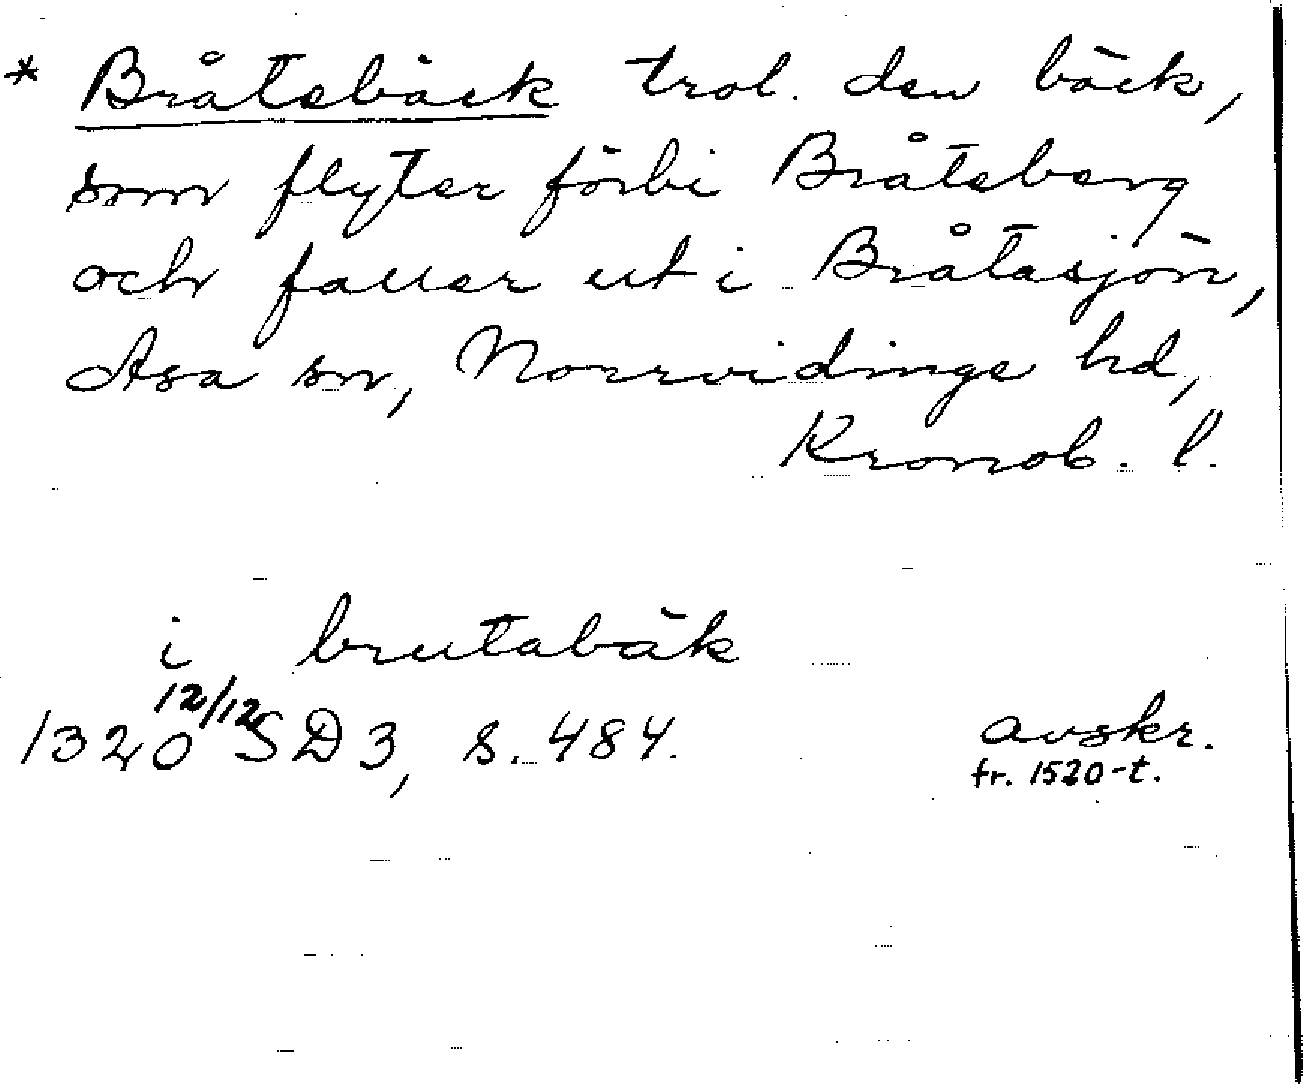 * Bråtebäck trol. den bäck,
som flyter förbi Bråteberg
och faller ut i Bråtasjön,
Asa sn, Norrvidinge hd,
Kronob. l.
i brutabäk
1320 12/12 SD 3, s. 484. avskr.
fr. 1520-t.